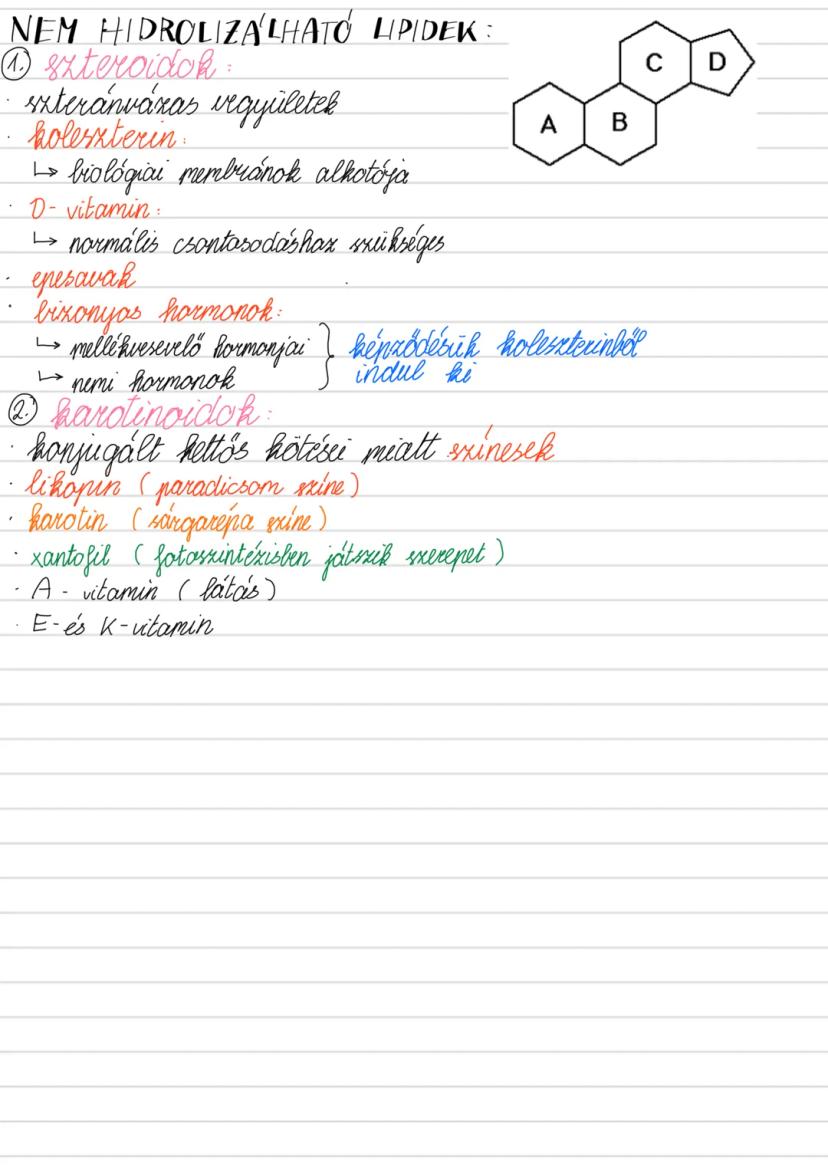 NEM HIDROLIZÁLHATÓ LIPIDEK:
1. szteroidok:
· szteránvázas vegyületek
· koleszterin:
↳ biológiai membránok alkotója
· D-vitamin:
↳ normális csontosodáshoz szükséges
· epesavak
· bizonyos hormonok:
↳ mellékvesevelő hormonjai } képződésük koleszterinből
↳ nemi hormonok indul ki
2. karotinoidok:
· konjugált kettős kötései miatt színesek
· likopin (paradicsom színe)
· karotin (sárgarépa színe)
· xantofil (fotoszintézisben játszik szerepet)
· A-vitamin (látás)
· E-és K-vitamin
A B C D